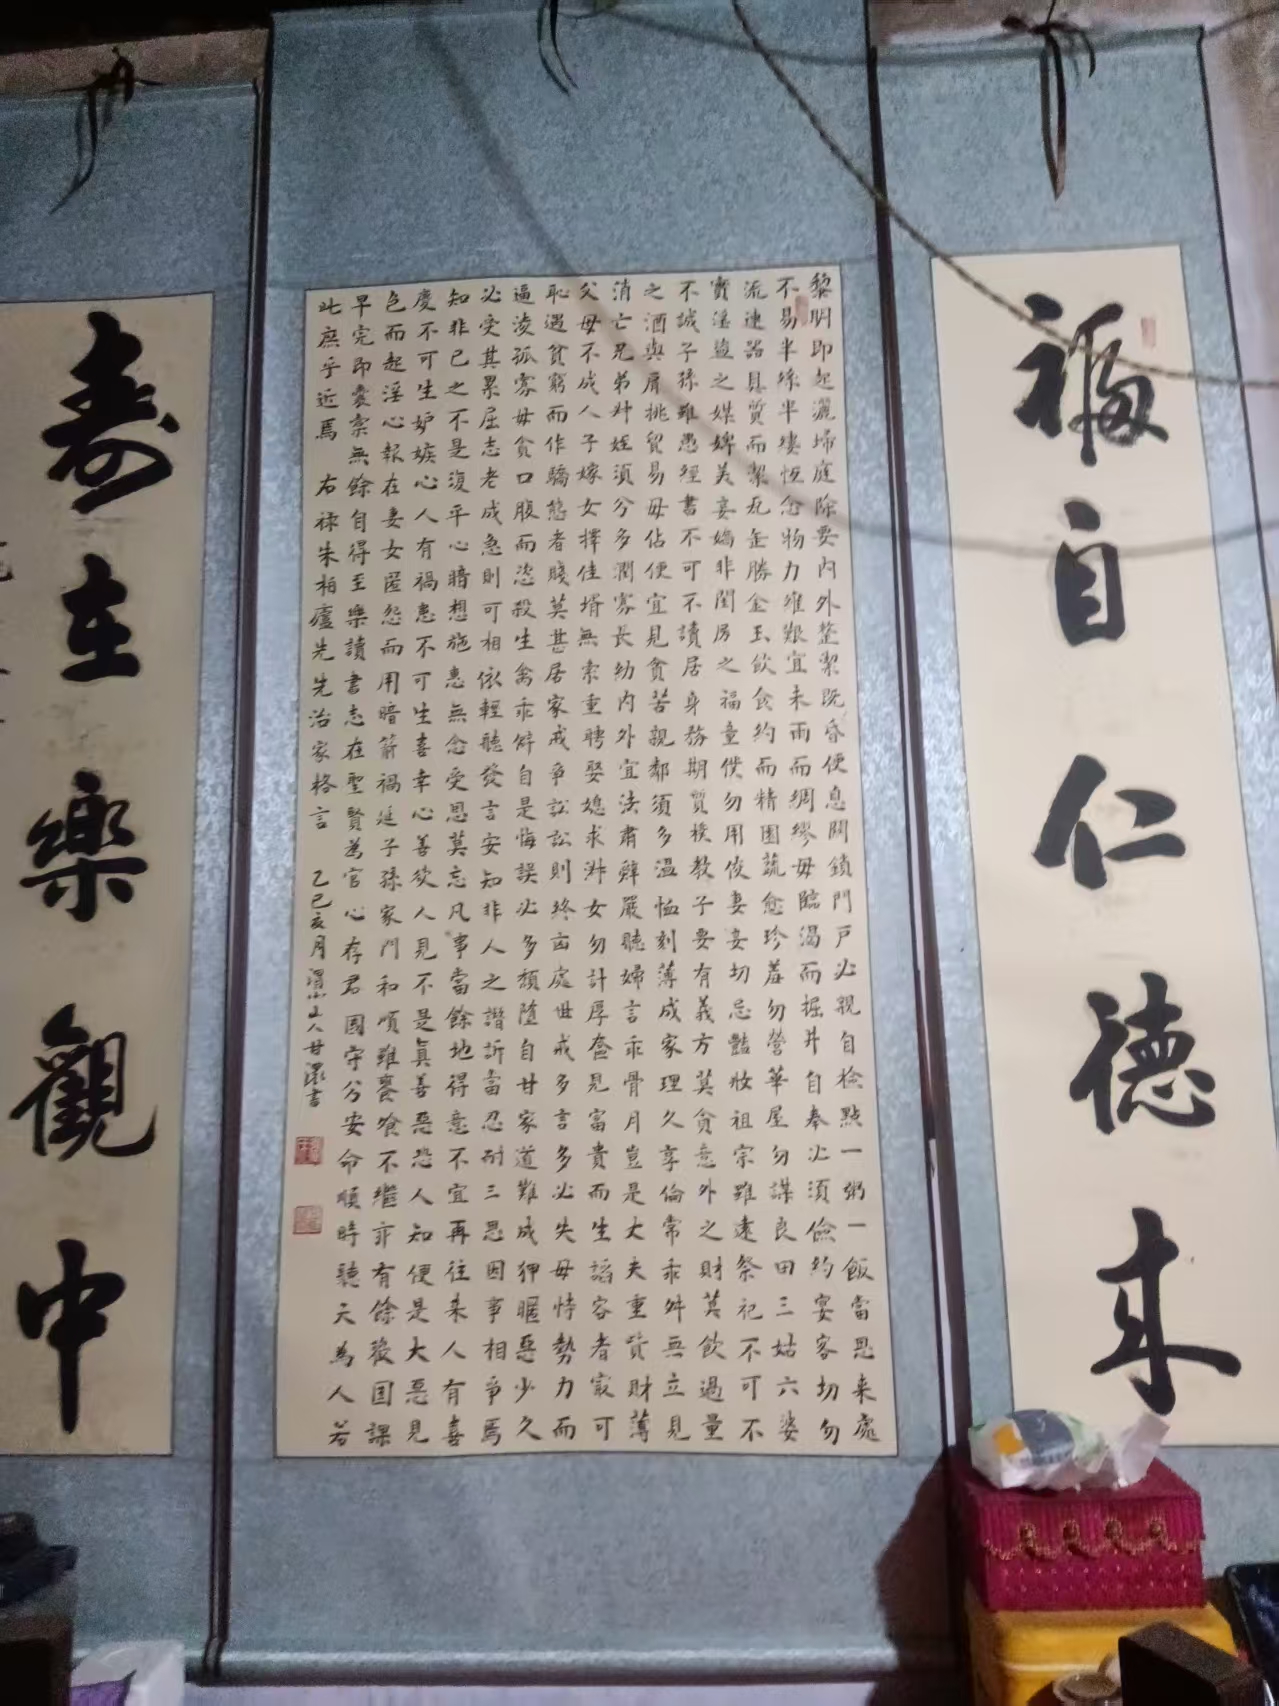 福自仁德来
黎明即起灑埽庭除要內外整潔既昏便息關鎖門戶必親自檢點一粥一飯當思来處
不易半絲半縷恆念物力維艱宜未雨而綢繆毋臨渴而掘井自奉必須儉約宴客切勿
流連器具質而潔瓦缶勝金玉飲食約而精園蔬愈珍羞勿營華屋勿謀良田三姑六婆
實淫盜之媒婢美妾嬌非閨房之福童僕勿用俊妻妾切忌豔妝祖宗雖遠祭祀不可不
不誠子孫雖愚經書不可不讀居身務期質樸教子要有義方莫貪意外之財莫飲過量
之酒與肩挑貿易毋佔便宜見貧苦親鄰須多溫恤刻薄成家理久享倫常乖舛無立見
消亡兄弟叔姪須分多潤寡長幼內外宜法肅辭嚴聽婦言乖骨月豈是大夫重貲財薄
父母不成人子嫁女擇佳壻無索重聘娶媳求淑女勿計厚奩見富貴而生諂容者最可
恥遇貧窮而作驕態者賤莫甚居家戒爭訟訟則終凶處世戒多言多必失毋恃勢力而
逼淩孤寡毋貪口腹而恣殺生禽乖僻自是悔誤必多頹墮自甘家道難成狎暱惡少久
必受其累屈志老成急則可相依輕聽發言安知非人之譖訴當忍耐三思因事相爭焉
知非己之不是復平心暗想施惠無念受恩莫忘凡事當餘地得意不宜再往来人有喜
慶不可生妒嫉心人有禍患不可生喜幸心善欲人見不是真善惡恐人知便是大惡見
色而起淫心報在妻女匿怨而用暗箭禍延子孫家門和順雖饔飧不繼亦有餘歡國課
早完即囊橐無餘自得至樂讀書志在聖賢為官心存君國守分安命順時聽天為人若
此庶乎近焉 右祿朱柏廬先先治家格言 乙巳亥月 人甘書
壽在樂觀中